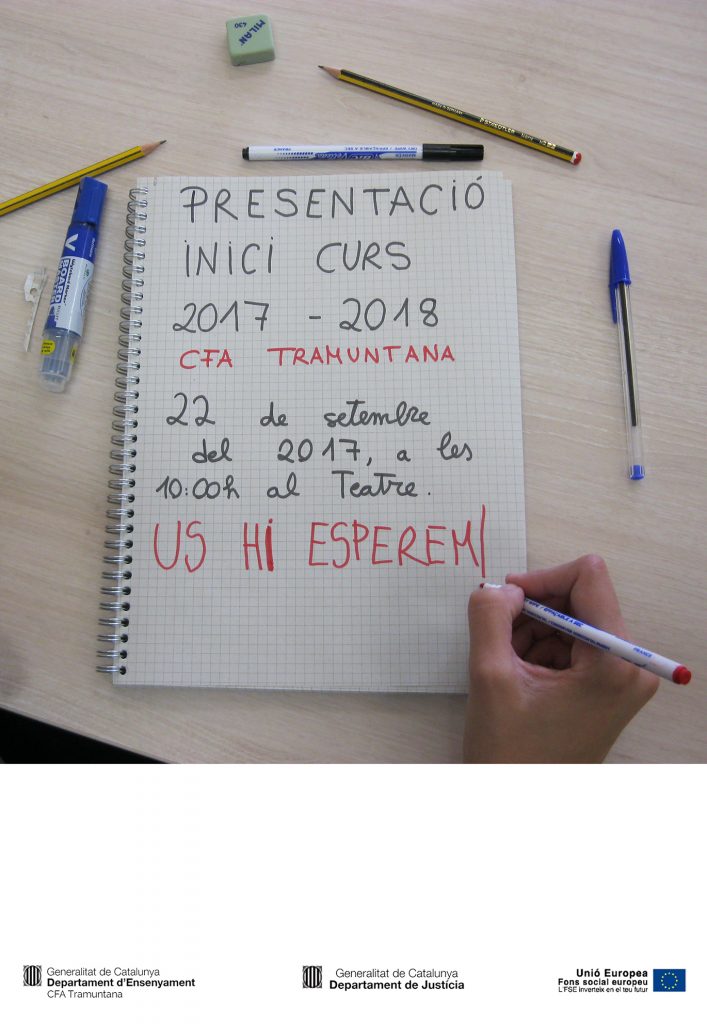 MILAN
430
STAEDTLER
PRESENTACIÓ
INICI CURS
2017 - 2018
CFA TRAMUNTANA
22 de setembre
del 2017, a les
10:00h al Teatre.
US HI ESPEREM
V BOARD
FRANCE
Generalitat de Catalunya
Departament d'Ensenyament
CFA Tramuntana
Generalitat de Catalunya
Departament de Justícia
Unió Europea
Fons social europeu
L'FSE inverteix en el teu futur